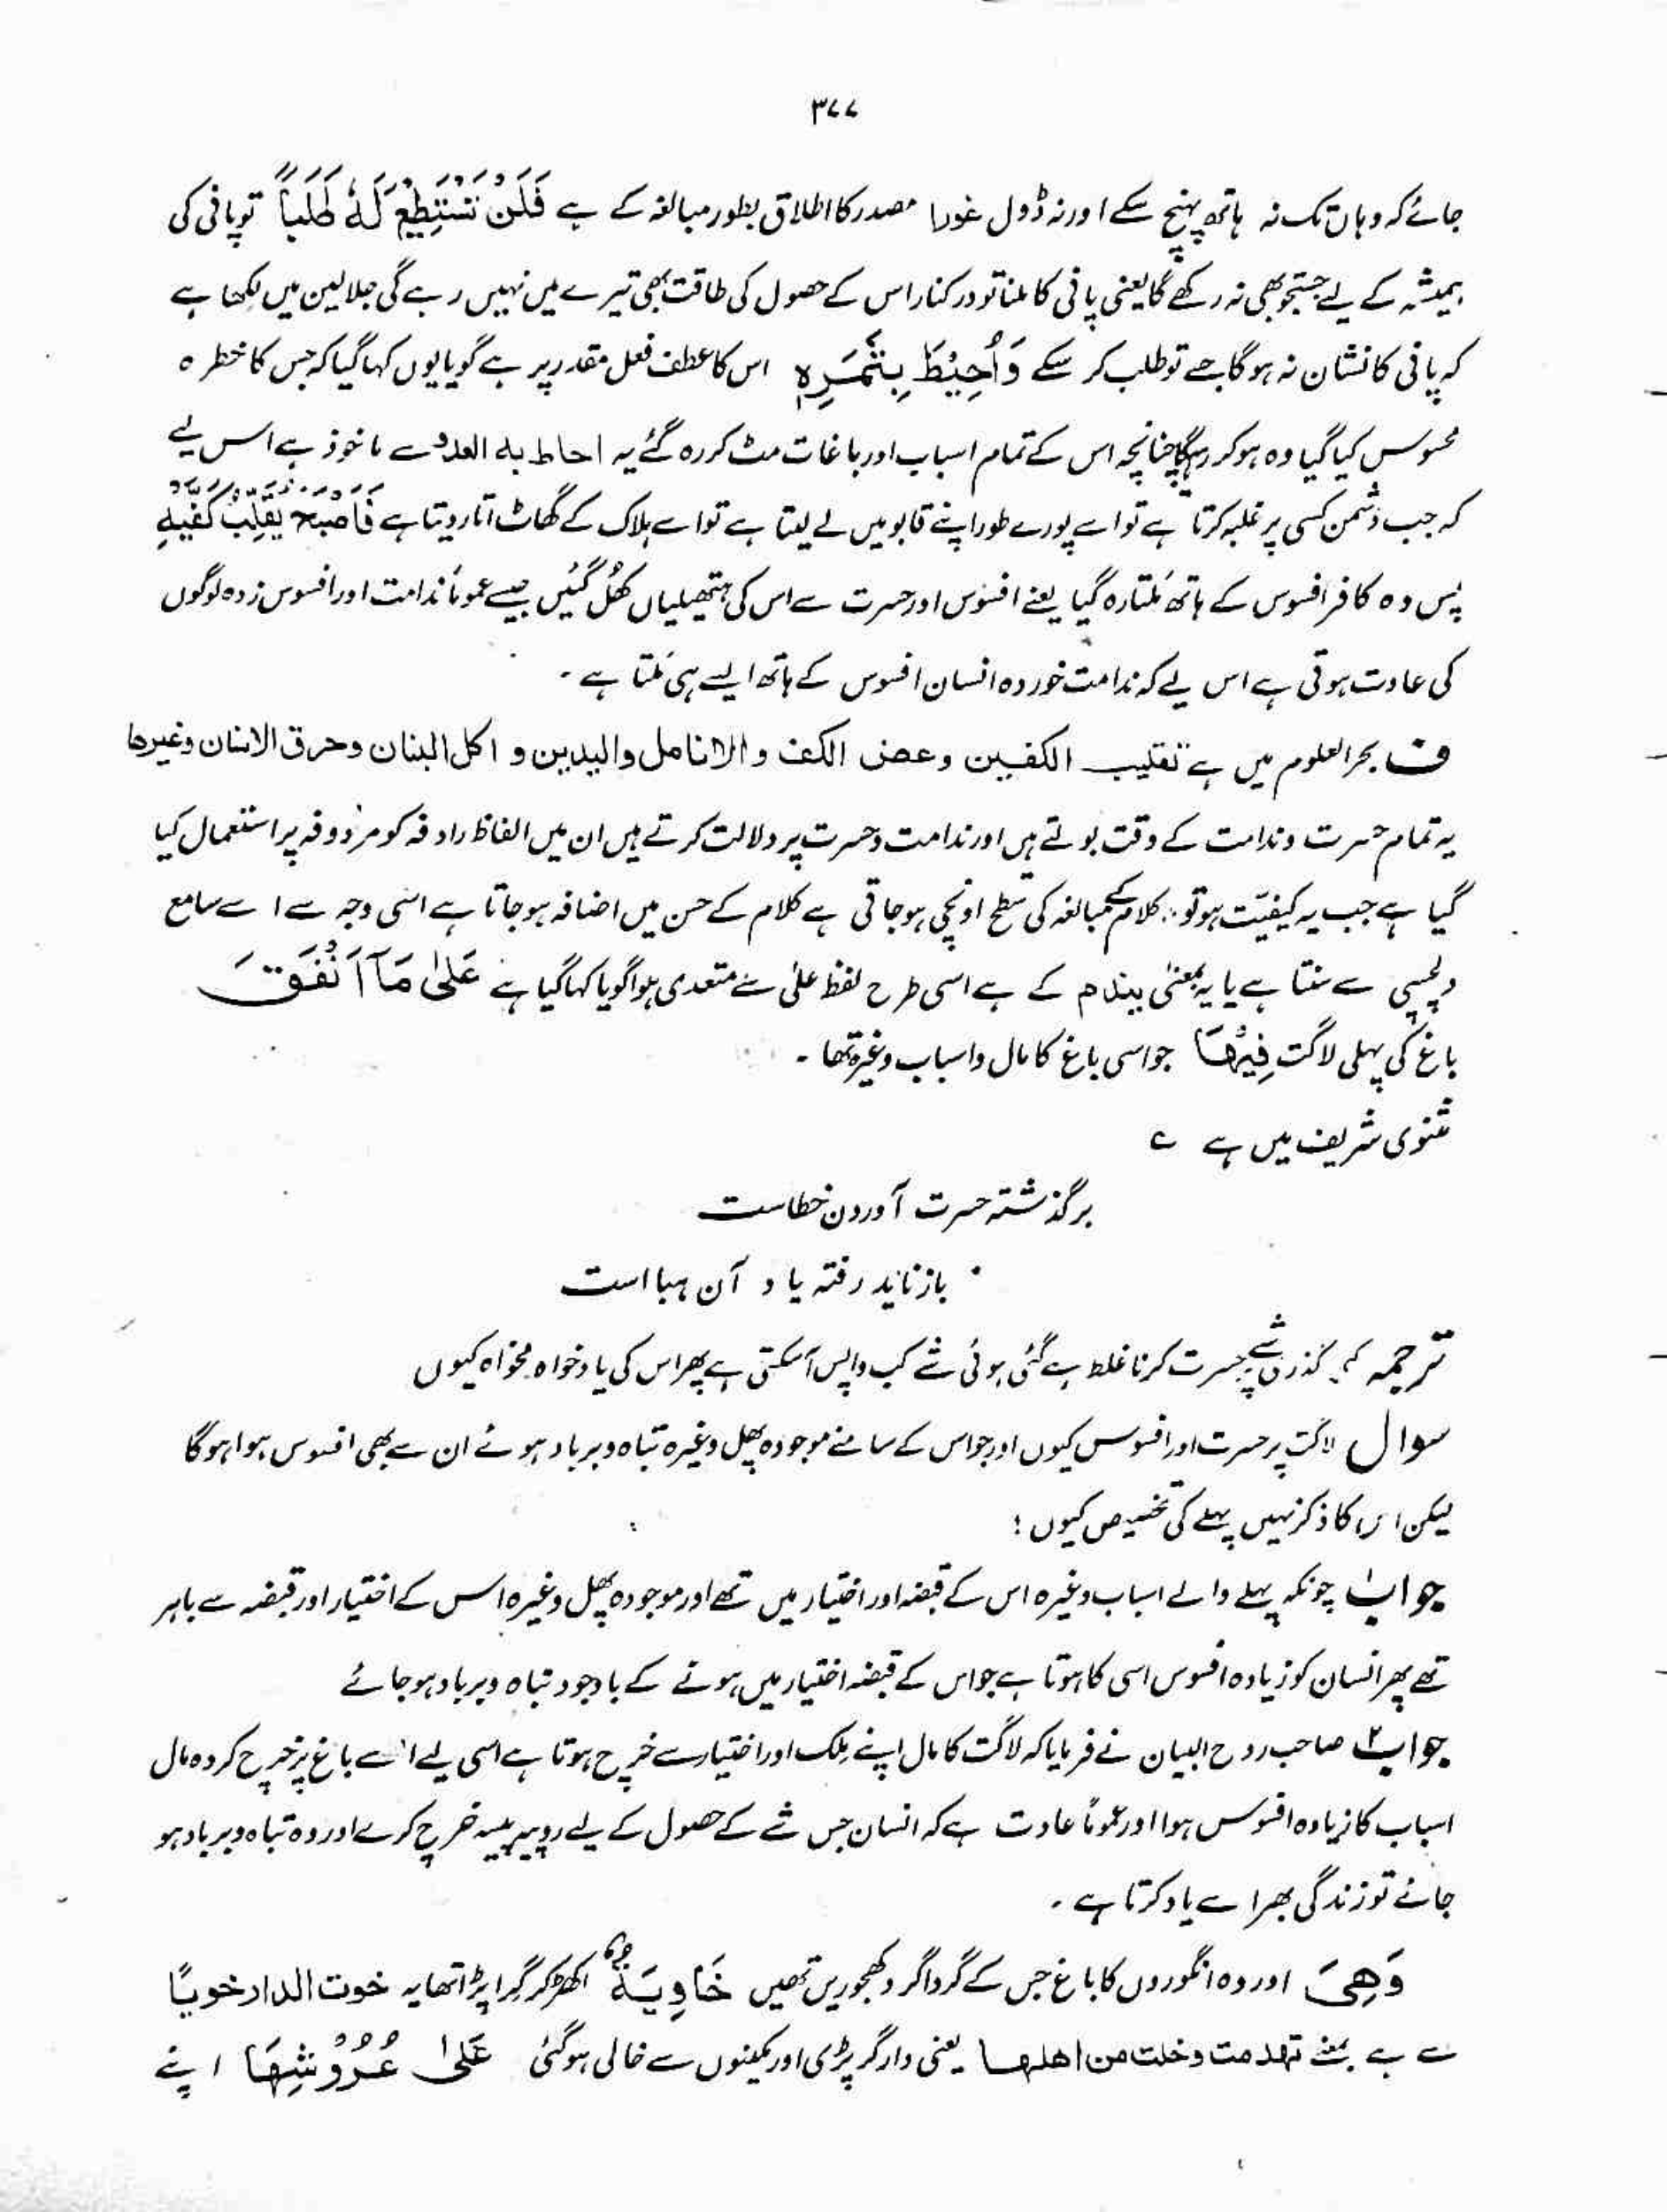 ٣٧٧
جائے کہ وہاں تک نہ ہاتھ پہنچ سکے اور نہ ڈول غورا مصدر کا اطلاق بطور مبالغہ کے ہے فَلَنْ تَسْتَطِيْعَ لَهٗ طَلَبًا تو پانی کی
ہمیشہ کے لیے جستجو بھی نہ رکھے گا یعنی پانی کا ملنا تو درکنار اس کے حصول کی طاقت بھی تیرے میں نہیں رہے گی جلالین میں لکھا ہے
کہ پانی کا نشان نہ ہوگا جسے تو طلب کر سکے وَاُحِيْطَ بِثَمَرِهٖ اس کا عطف فعل مقدر پر ہے گویا یوں کہا گیا کہ جس کا خطرہ
محسوس کیا گیا وہ ہو کر رہیگا چنانچہ اس کے تمام اسباب اور باغات مٹ کر رہ گئے یہ احاط به العدو سے ماخوذ ہے اس لیے
کہ جب دشمن کسی پر غلبہ کرتا ہے تو اسے پورے طور اپنے قابو میں لے لیتا ہے تو اسے ہلاک کے گھاٹ اتار دیتا ہے فَاَصْبَحَ يُقَلِّبُ كَفَّيْهِ
پس وہ کافر افسوس کے ہاتھ مَلتا رہ گیا یعنے افسوس اور حسرت سے اس کی ہتھیلیاں کھُل گئیں جیسے عموماً ندامت اور افسوس زدہ لوگوں
کی عادت ہوتی ہے اس لیے کہ ندامت خوردہ انسان افسوس کے ہاتھ ایسے ہی مَلتا ہے ۔
ف بحر العلوم میں ہے تقلیب الکفین وعض الکف والانامل والیدین و اکل البنان وحرق الاسنان وغیرها
یہ تمام حسرت وندامت کے وقت بولتے ہیں اور ندامت وحسرت پر دلالت کرتے ہیں ان میں الفاظ رادفہ کو مردوفہ پر استعمال کیا
گیا ہے جب یہ کیفیّت ہو تو کلام کے مبالغہ کی سطح اونچی ہو جاتی ہے کلام کے حسن میں اضافہ ہو جاتا ہے اسی وجہ سے اسے سامع
دلچسپی سے سنتا ہے یا یہ بمعنیٰ یندم کے ہے اسی طرح لفظ علیٰ سے متعدی ہوا گویا کہا گیا ہے عَلٰى مَآ اَنْفَقَ
باغ کی پہلی لاگت فِيْهَا جو اسی باغ کا مال واسباب وغیرہ تھا ۔
مثنوی شریف میں ہے ؎
برگذشتہ حسرت آوردن خطاست
باز ناید رفتہ یاد آن ہبا است
ترجمہ گذری شے پر حسرت کرنا غلط ہے گئی ہوئی شے کب واپس آسکتی ہے پھر اس کی یاد خواہ مخواہ کیوں
سوال لاگت پر حسرت اور افسوس کیوں اور جو اس کے سامنے موجودہ پھل وغیرہ تباہ وبرباد ہوئے ان سے بھی افسوس ہوا ہوگا
لیکن اس کا ذکر نہیں پہلے کی تخصیص کیوں ؛
جواب۱ چونکہ پہلے والے اسباب وغیرہ اس کے قبضہ اور اختیار میں تھے اور موجودہ پھل وغیرہ اس کے اختیار اور قبضہ سے باہر
تھے پھر انسان کو زیادہ افسوس اسی کا ہوتا ہے جو اس کے قبضہ اختیار میں ہونے کے باوجود تباہ وبرباد ہو جائے
جواب۲ صاحب روح البیان نے فرمایا کہ لاگت کا مال اپنے مِلک اور اختیار سے خرچ ہوتا ہے اسی لیے اسے باغ پر خرچ کردہ مال
اسباب کا زیادہ افسوس ہوا اور عموماً عادت ہے کہ انسان جس شے کے حصول کے لیے روپیہ پیسہ خرچ کرے اور وہ تباہ وبرباد ہو
جائے تو زندگی بھر اسے یاد کرتا ہے ۔
وَهِىَ اور وہ انگوروں کا باغ جس کے گرداگرد کھجوریں تھیں خَاوِيَةٌ اکھڑ کر گرا پڑا تھا یہ خوت الدار خویًا
سے ہے بمعنے تهدمت وخلت من اهلها یعنی دار گر پڑی اور مکینوں سے خالی ہو گئی عَلٰى عُرُوْشِهَا اپنے